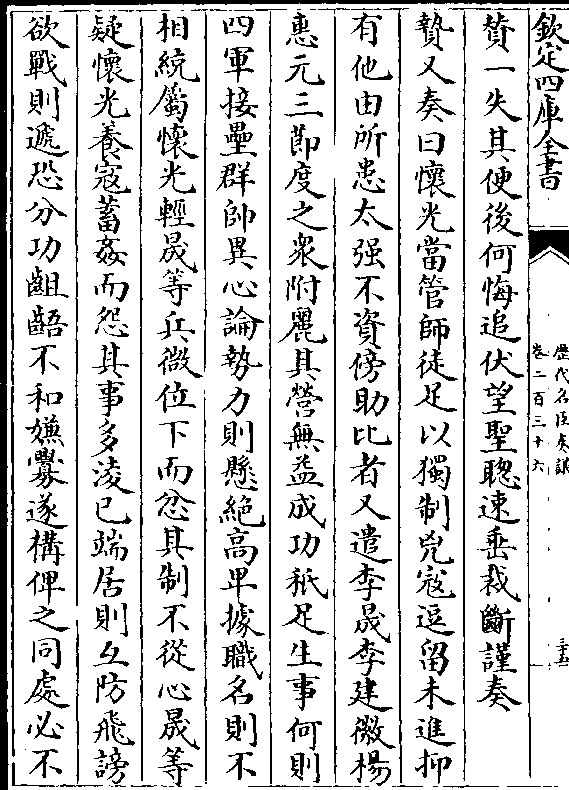 欽定四庫全書
歷代名臣奏議
卷二百三十六
三十五
贊一失其便後何悔追伏望聖聰速垂裁斷謹奏
贄又奏曰懷光當管師徒足以獨制兇寇逗留未進抑
有他由所患太强不資傍助比者又遣李晟李建微楊
惠元三節度之衆附麗其營無益成功秖足生事何則
四軍接壘群帥異心論勢力則懸絶高卑據職名則不
相統屬懷光輕晟等兵微位下而忿其制不從心晟等
疑懷光養寇蓄姦而怨其事多淩已端居則互防飛謗
欲戰則遞恐分功齟齬不和嫌釁遂構俾之同處必不